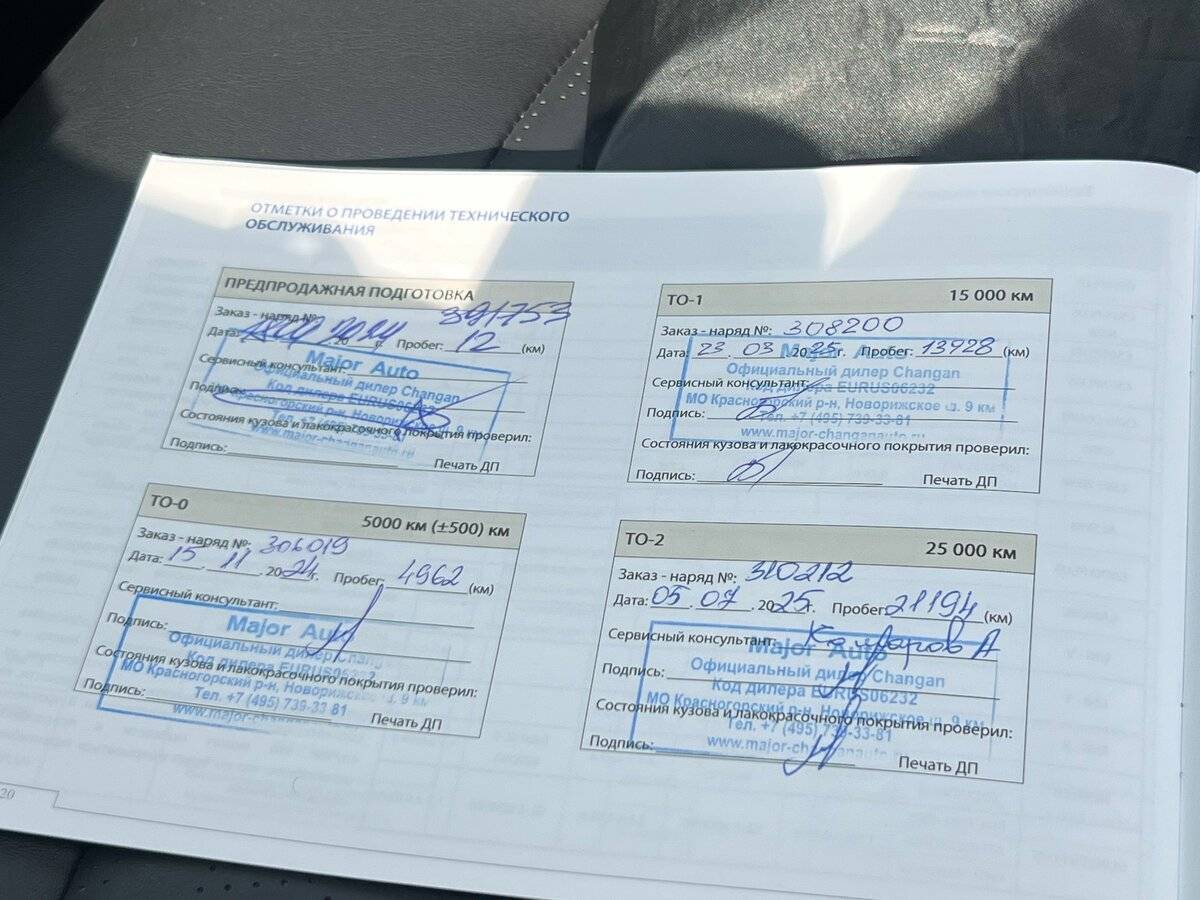 ОТМЕТКИ О ПРОВЕДЕНИИ ТЕХНИЧЕСКОГО
ОБСЛУЖИВАНИЯ
ПРЕДПРОДАЖНАЯ ПОДГОТОВКА
Заказ - наряд №: 391753
Дата: 2024 г. Пробег: 12 (км)
Сервисный консультант:
Подпись:
Состояния кузова и лакокрасочного покрытия проверил:
Подпись: Печать ДП
Major Auto
Официальный дилер Changan
Код дилера EURUS06232
Красногорский р-н, Новорижское 9 км
www.major-changanauto.ru
ТО-0 5000 км (±500) км
Заказ - наряд №: 306019
Дата: 15 . 11 . 2024 г. Пробег: 4962 (км)
Сервисный консультант:
Подпись:
Состояния кузова и лакокрасочного покрытия проверил:
Подпись: Печать ДП
Major Auto
Официальный дилер Changan
Код дилера EURUS06232
МО Красногорский р-н, Новорижское ш. 9 км
Тел. +7 (495) 739-33 81
www.major-chang
ТО-1 15 000 км
Заказ - наряд №: 308200
Дата: 23 . 03 . 2025 г. Пробег: 13928 (км)
Сервисный консультант:
Подпись:
Состояния кузова и лакокрасочного покрытия проверил:
Подпись: Печать ДП
Major Auto
Официальный дилер Changan
Код дилера EURUS06232
МО Красногорский р-н, Новорижское ш. 9 км
Тел. +7 (495) 739-33-81
www.major-changanauto.ru
ТО-2 25 000 км
Заказ - наряд №: 310212
Дата: 05 . 07 . 2025 г. Пробег: 21194 (км)
Сервисный консультант:
Подпись:
Состояния кузова и лакокрасочного покрытия проверил:
Подпись: Печать ДП
Major Auto
Официальный дилер Changan
Код дилера EURUS06232
МО Красногорский р-н, Новорижское ш. 9 км
Тел. +7 (495) 739-33-81
www.major-changanauto.ru
20